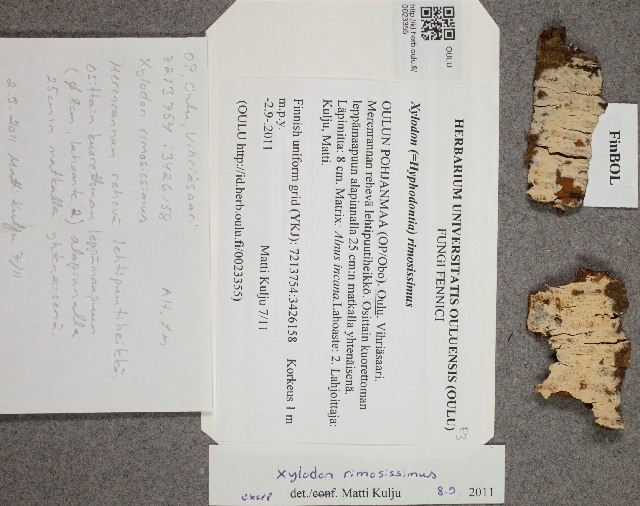 HERBARIUM UNIVERSITATIS OULUENSIS (OULU)
FUNGI FENNICI
Xylodon (=Hyphodontia) rimosissimus
OULUN POHJANMAA (OP/Obo). Oulu. Vihriäsaari.
Merenrannan rehevä lehtipuutiheikkö. Osittain kuorettoman
leppämaapuun alapinnalla 25 cm:n matkalla yhtenäisenä.
Läpimitta: 8 cm. Matrix: Alnus incana. Lahoaste: 2. Lahjoittaja:
Kulju, Matti.
Finnish uniform grid (YKJ): 7213754:3426158 Korkeus 1 m
m.p.y.
-2.9.-2011 Matti Kulju 7/11
(OULU http://id.herb.oulu.fi/0023355)
OULU
http://id.herb.oulu.fi/
0023355
Xylodon rimosissimus
det./conf. Matti Kulju 8.9 2011
FinBOL
OP, Oulu, Vihriäsaari
7213754:3426158 Alt. 1 m
Xylodon rimosissimus
Merenrannan rehevä lehtipuutiheikkö,
osittain kuorettoman leppämaapuun
(ø 8cm lahoaste 2) alapinnalla
25cm:n matkalla yhtenäisenä.
2.9.2011 Matti Kulju 7/11